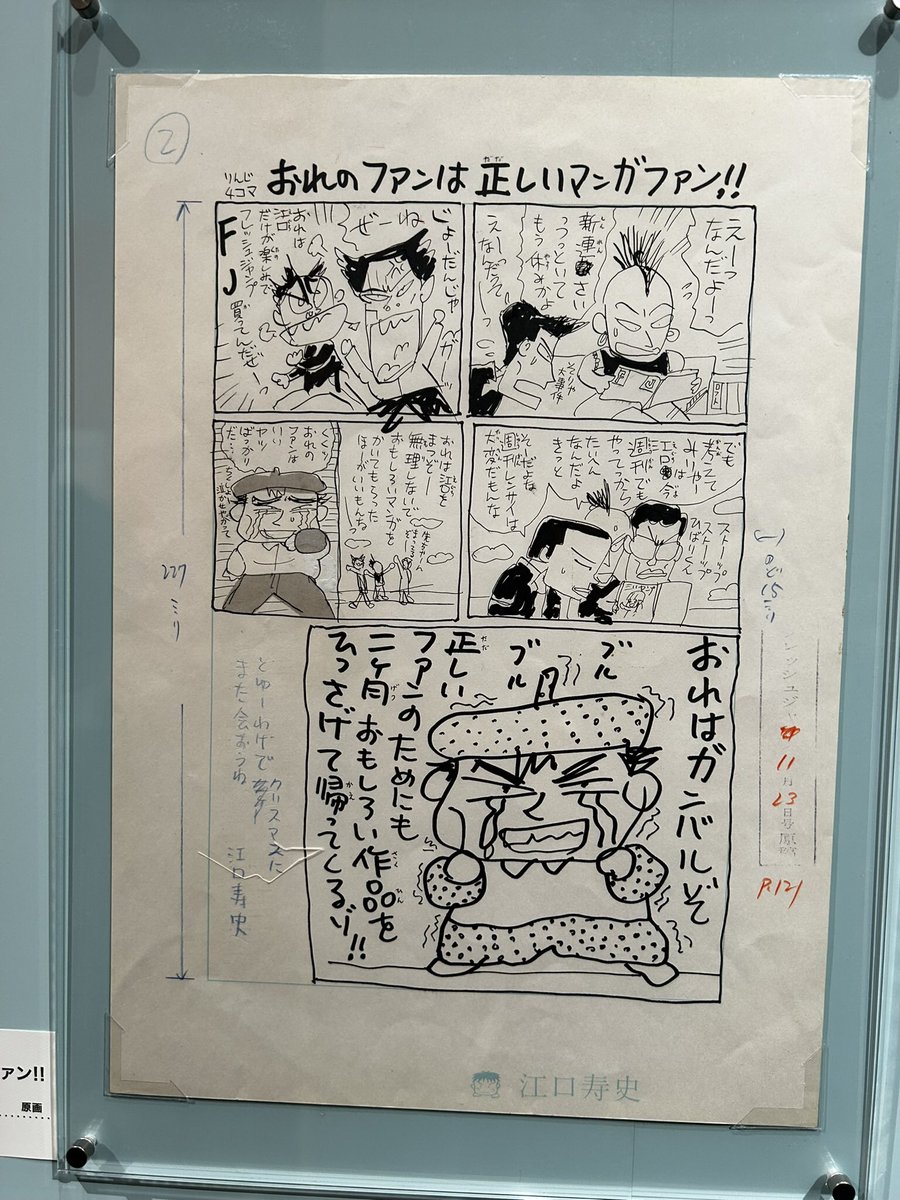 2
りんじ
4コマ
おれのファンは正しいマンガファン!!
えーっ
なんだっよーっ
新連載さい
つっといて
もう休みかよ
えーなんだってーっ
じょーだんじゃ
ぜーね
おれは
江口
だけが楽しみで
フレッシュジャンプ
買ってんだぜーっ
FJ
でも
考えて
みりゃー
江口は今
週刊でも
やってっから
たいへん
なんだよ
きっと
ストーップ
ストーップ
ひばりくん
そーだよな
週刊レンサイは
大変だもんな
おれは江口を
まつぞー
無理しないで
おもしろいマンガを
かいてもらった
ほーがいいもんねっ
くくっ
おれの
ファンは
いい
ヤツ
ばっかり
だ…
おれはガニバルぞ
ブル
ブル
正しい
ファンのためにも
二ヶ月おもしろい作品を
ひっさげて帰ってくるゾ!!
とゆーわけで
クリスマスに
また会おうね
江口寿史
227ミリ
のど15ミリ
フレッシュジャ
11月
23日号原稿
P.121
江口寿史
ァン!!
原画